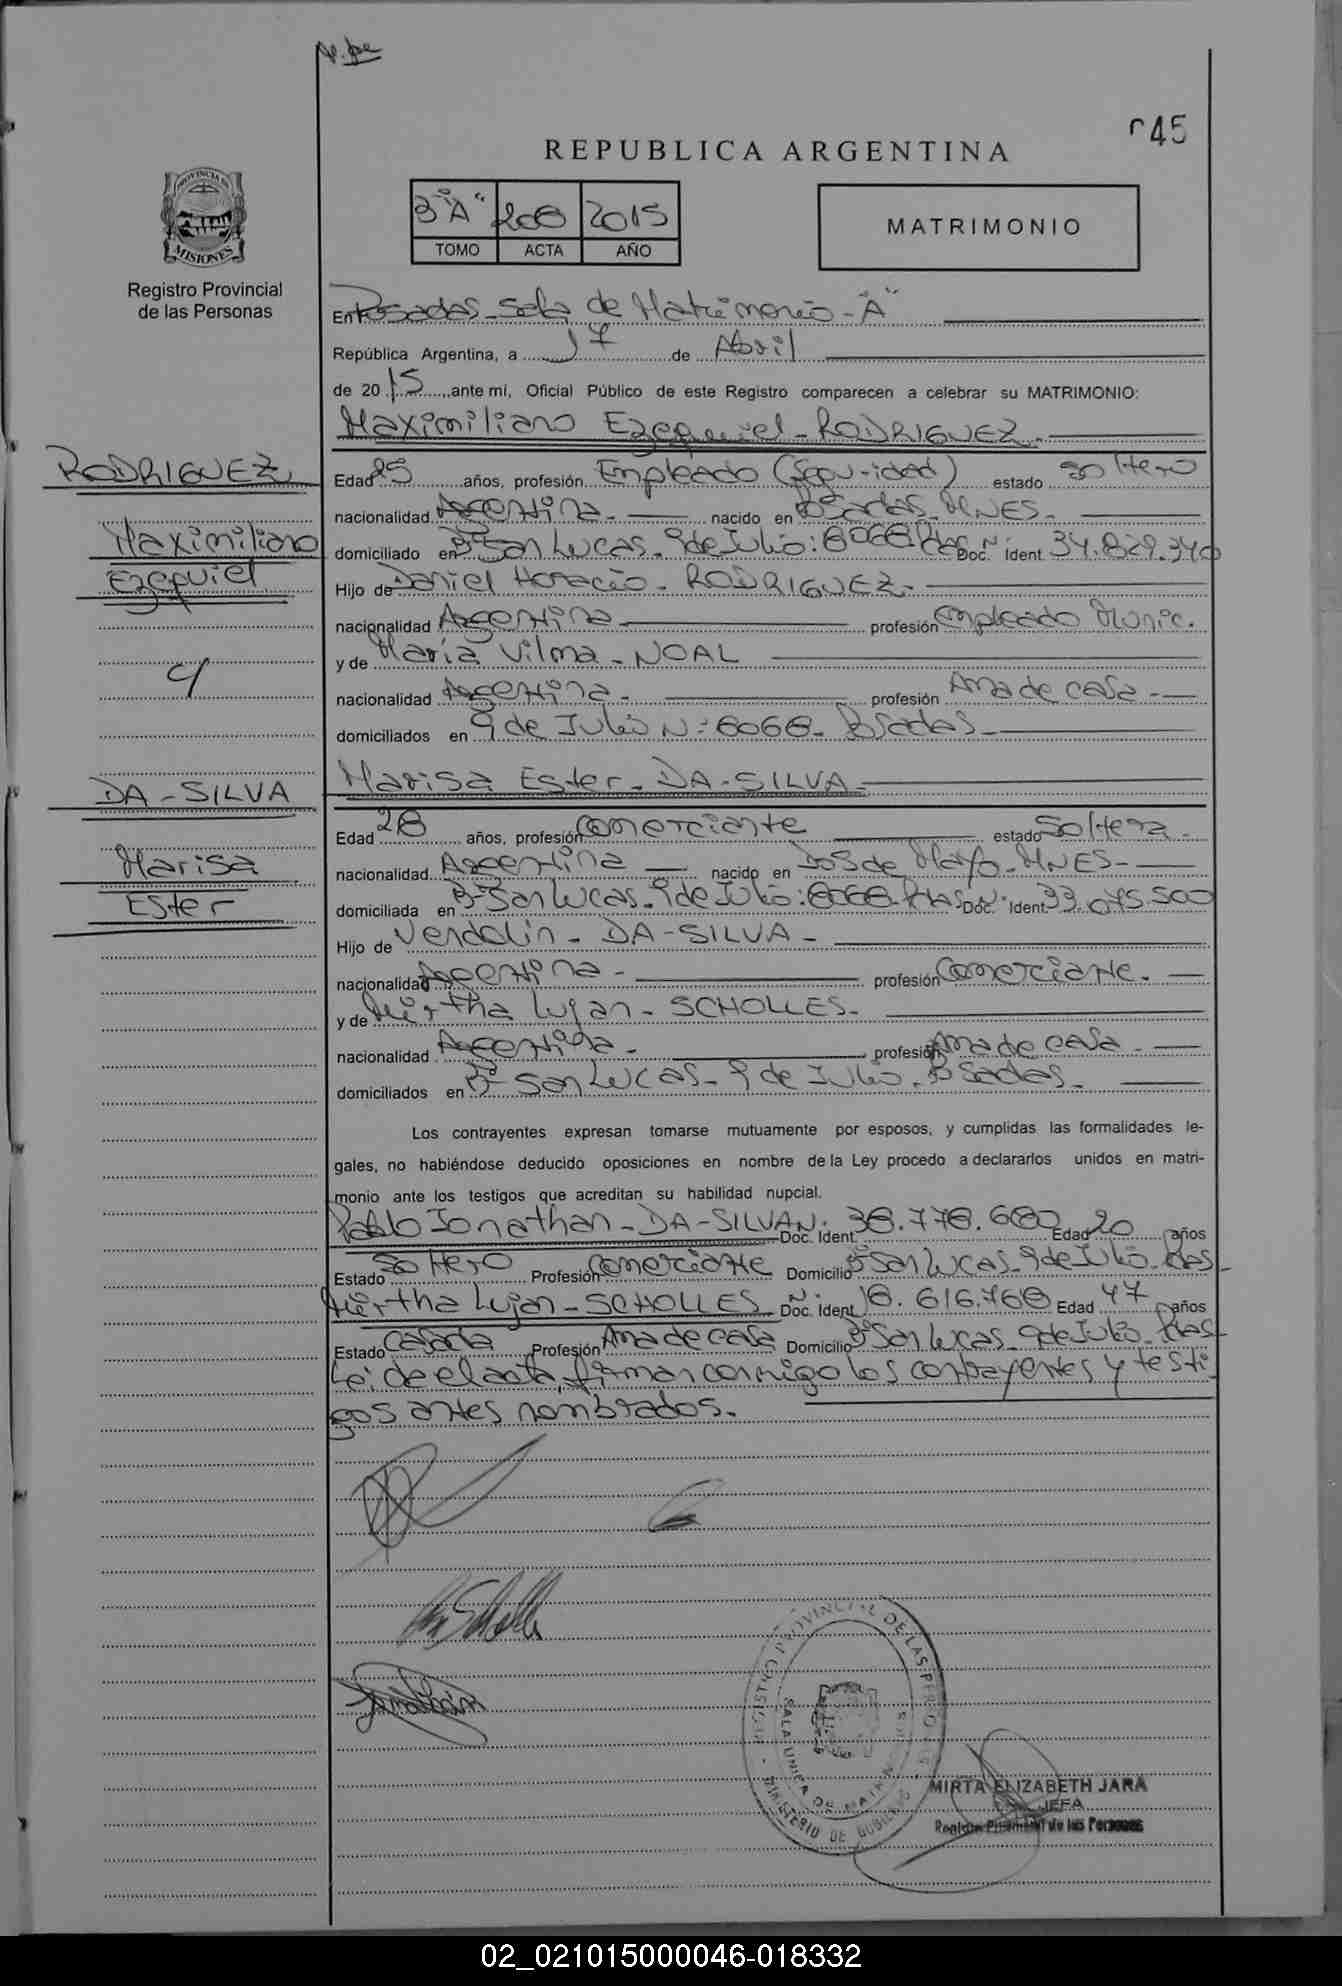 045
REPUBLICA ARGENTINA
3"A" 208 2015
TOMO ACTA AÑO
MATRIMONIO
PROVINCIA DE
MISIONES
Registro Provincial
de las Personas
En Posadas - Sala de Matrimonio - "A"
República Argentina, a 17 de Abril
de 2015, ante mi, Oficial Público de este Registro comparecen a celebrar su MATRIMONIO:
Maximiliano Ezequiel - RODRIGUEZ.
RODRIGUEZ
Maximiliano
Ezequiel
Edad 25 años, profesión Empleado (Seguridad) estado soltero
nacionalidad Argentina. nacido en Posadas - MNES.
domiciliado en Bº San Lucas - 9 de Julio: 8068 Pdas Doc. Nº Ident. 34.829.340
Hijo de Daniel Horacio - RODRIGUEZ.
nacionalidad Argentina profesión Empleado Munic.
y de María Vilma - NOAL
nacionalidad Argentina - profesión Ama de casa -
domiciliados en 9 de Julio N: 8068 - Posadas -
y
Marisa Ester - DA-SILVA -
DA-SILVA
Marisa
Ester
Edad 28 años, profesión Comerciante estado Soltera -
nacionalidad Argentina nacido en Dos de Mayo - MNES -
domiciliada en Bº San Lucas - 9 de Julio: 8068 - Pdas Doc. Nº Ident 33.075.500
Hijo de Vendolin - DA-SILVA -
nacionalidad Argentina - profesión Comerciante.
y de Mirtha Lujan - SCHOLLES -
nacionalidad Argentina - profesión Ama de casa -
domiciliados en Bº San Lucas - 9 de Julio - Posadas -
Los contrayentes expresan tomarse mutuamente por esposos, y cumplidas las formalidades le-
gales, no habiéndose deducido oposiciones en nombre de la Ley procedo a declararlos unidos en matri-
monio ante los testigos que acreditan su habilidad nupcial.
Pablo Jonathan - DA-SILVA N: Doc. Ident. 38.778.680 Edad 20 años
Estado Soltero Profesión Comerciante Domicilio Bº San Lucas - 9 de Julio - Pdas -
Mirtha Lujan - SCHOLLES Nº Doc. Ident. 18.616.768 Edad 47 años
Estado Casada Profesión Ama de casa Domicilio Bº San Lucas - 9 de Julio - Pdas -
Leída el acta, firman conmigo los contrayentes y testi
gos antes nombrados.
REGISTRO PROVINCIAL DE LAS PERSONAS
SALA UNICA DE MATRIMONIOS
MINISTERIO DE GOBIERNO
MIRTA ELIZABETH JARA
JEFA
Registro Provincial de las Personas
02_021015000046-018332